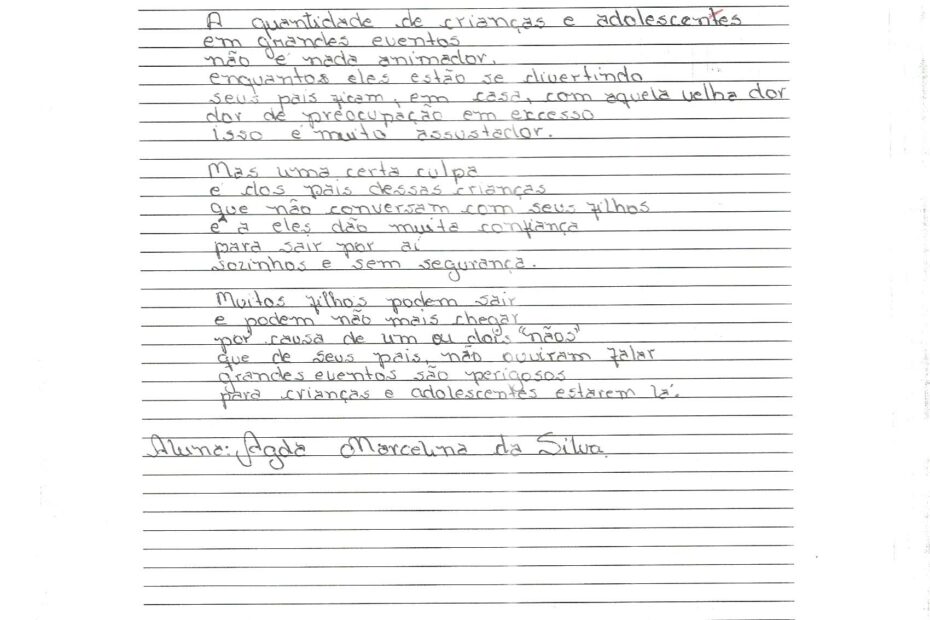 A quantidade de crianças e adolescentes
em grandes eventos
não é nada animador.
enquantos eles estão se divertindo
seus pais ficam, em casa, com aquela velha dor
dor de preocupação em excesso
isso é muito assustador.
Mas uma certa culpa
é dos pais dessas crianças
que não conversam com seus filhos
e a eles dão muita confiança
para sair por aí
sozinhos e sem segurança.
Muitos filhos podem sair
e podem não mais chegar
por causa de um ou dois "nãos"
que de seus pais, não ouviram falar
grandes eventos são perigosos
para crianças e adolescentes estarem lá.
Aluna: Agda Marcelina da Silva.